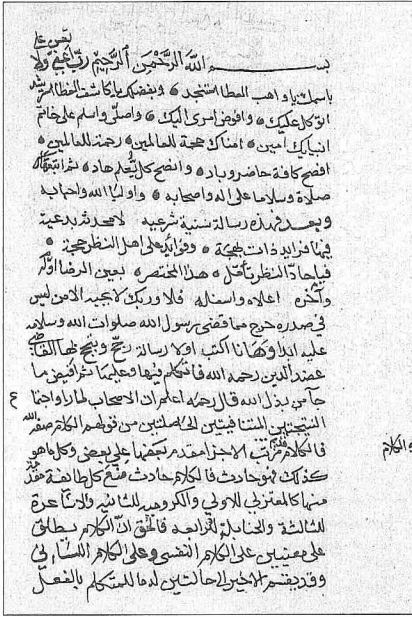 بســـــم الله الرَّحْمٰنِ الرَّحِيْمِ رَبِّ أعني ولا تعن علي
باسمك يا واهب العطا استنجد وبفضلك يا كاشف الغطا استرشد
اتوكل عليك وافوض امري اليك واصلي واسلم على خاتم
انبيايك امين امناك حجة للعالمين رحمة للعالمين
افصح كافة حاضر وباد وانصح كل معلم هاد
صلاة وسلاما على اله واصحابه واولياء الله واحبابه
وبعد فهذه رسالة سنية شرعيه لا محدثة بدعية
فيها فرايد ذات بهجة وفوايد على اهل النظر حجة
فيا حاد النظر تأمل هذا المختصر بعين الرضا اوله
وآخره اعلاه واسفله فلا وربك لا يجيد الا من ليس
في صدره حرج مما قضى رسول الله صلوات الله وسلامه
عليه ابدا وها انا اكتب اولا رسالة القاضي
عضد الدين رحمه الله فاتكلم فيها وعليها ثم افيض ما
جآ من بذل الله قال رحمه اعلم ان الاصحاب لما راوا
النتيجتين المتنافيتين الحاصلتين من قولهم الكلام صفة الله
والكلام
فالكلام مرتب الاجزا مقدم بعضها على بعض وكل ما هو
كذلك فهو حادث فالكلام حادث منع كل طائفة مقدمة
منها كالمعتزلي للاولي والكرومية للثانيه والاشاعرة
للثالثة والحنابلة للرابعه فالحق ان الكلام يطلق
على معنيين على الكلام النفسي وعلى الكلام اللساني
وقد يقسم الاخير الى حالتين له ما للمتكلم بالفعل